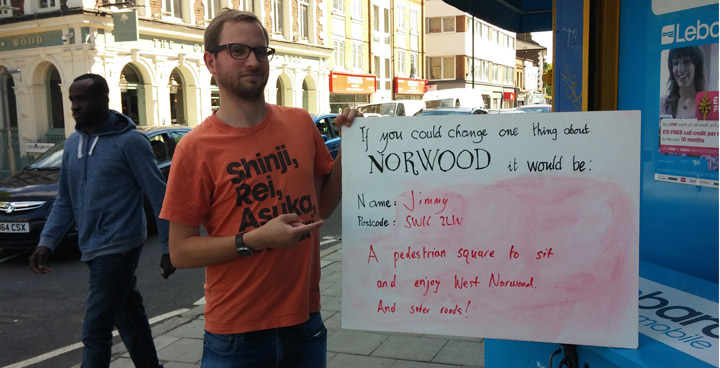 WOOD
If you could change one thing about
NORWOOD it would be:
Name: Jimmy
Postcode: SW16 2LW
A pedestrian square to sit
and enjoy West Norwood.
And safer roads!
Shinji,
Rei,
Asuka,
64 CSX
Leba
£10 FREE call credit per
10 months
bara
mobile